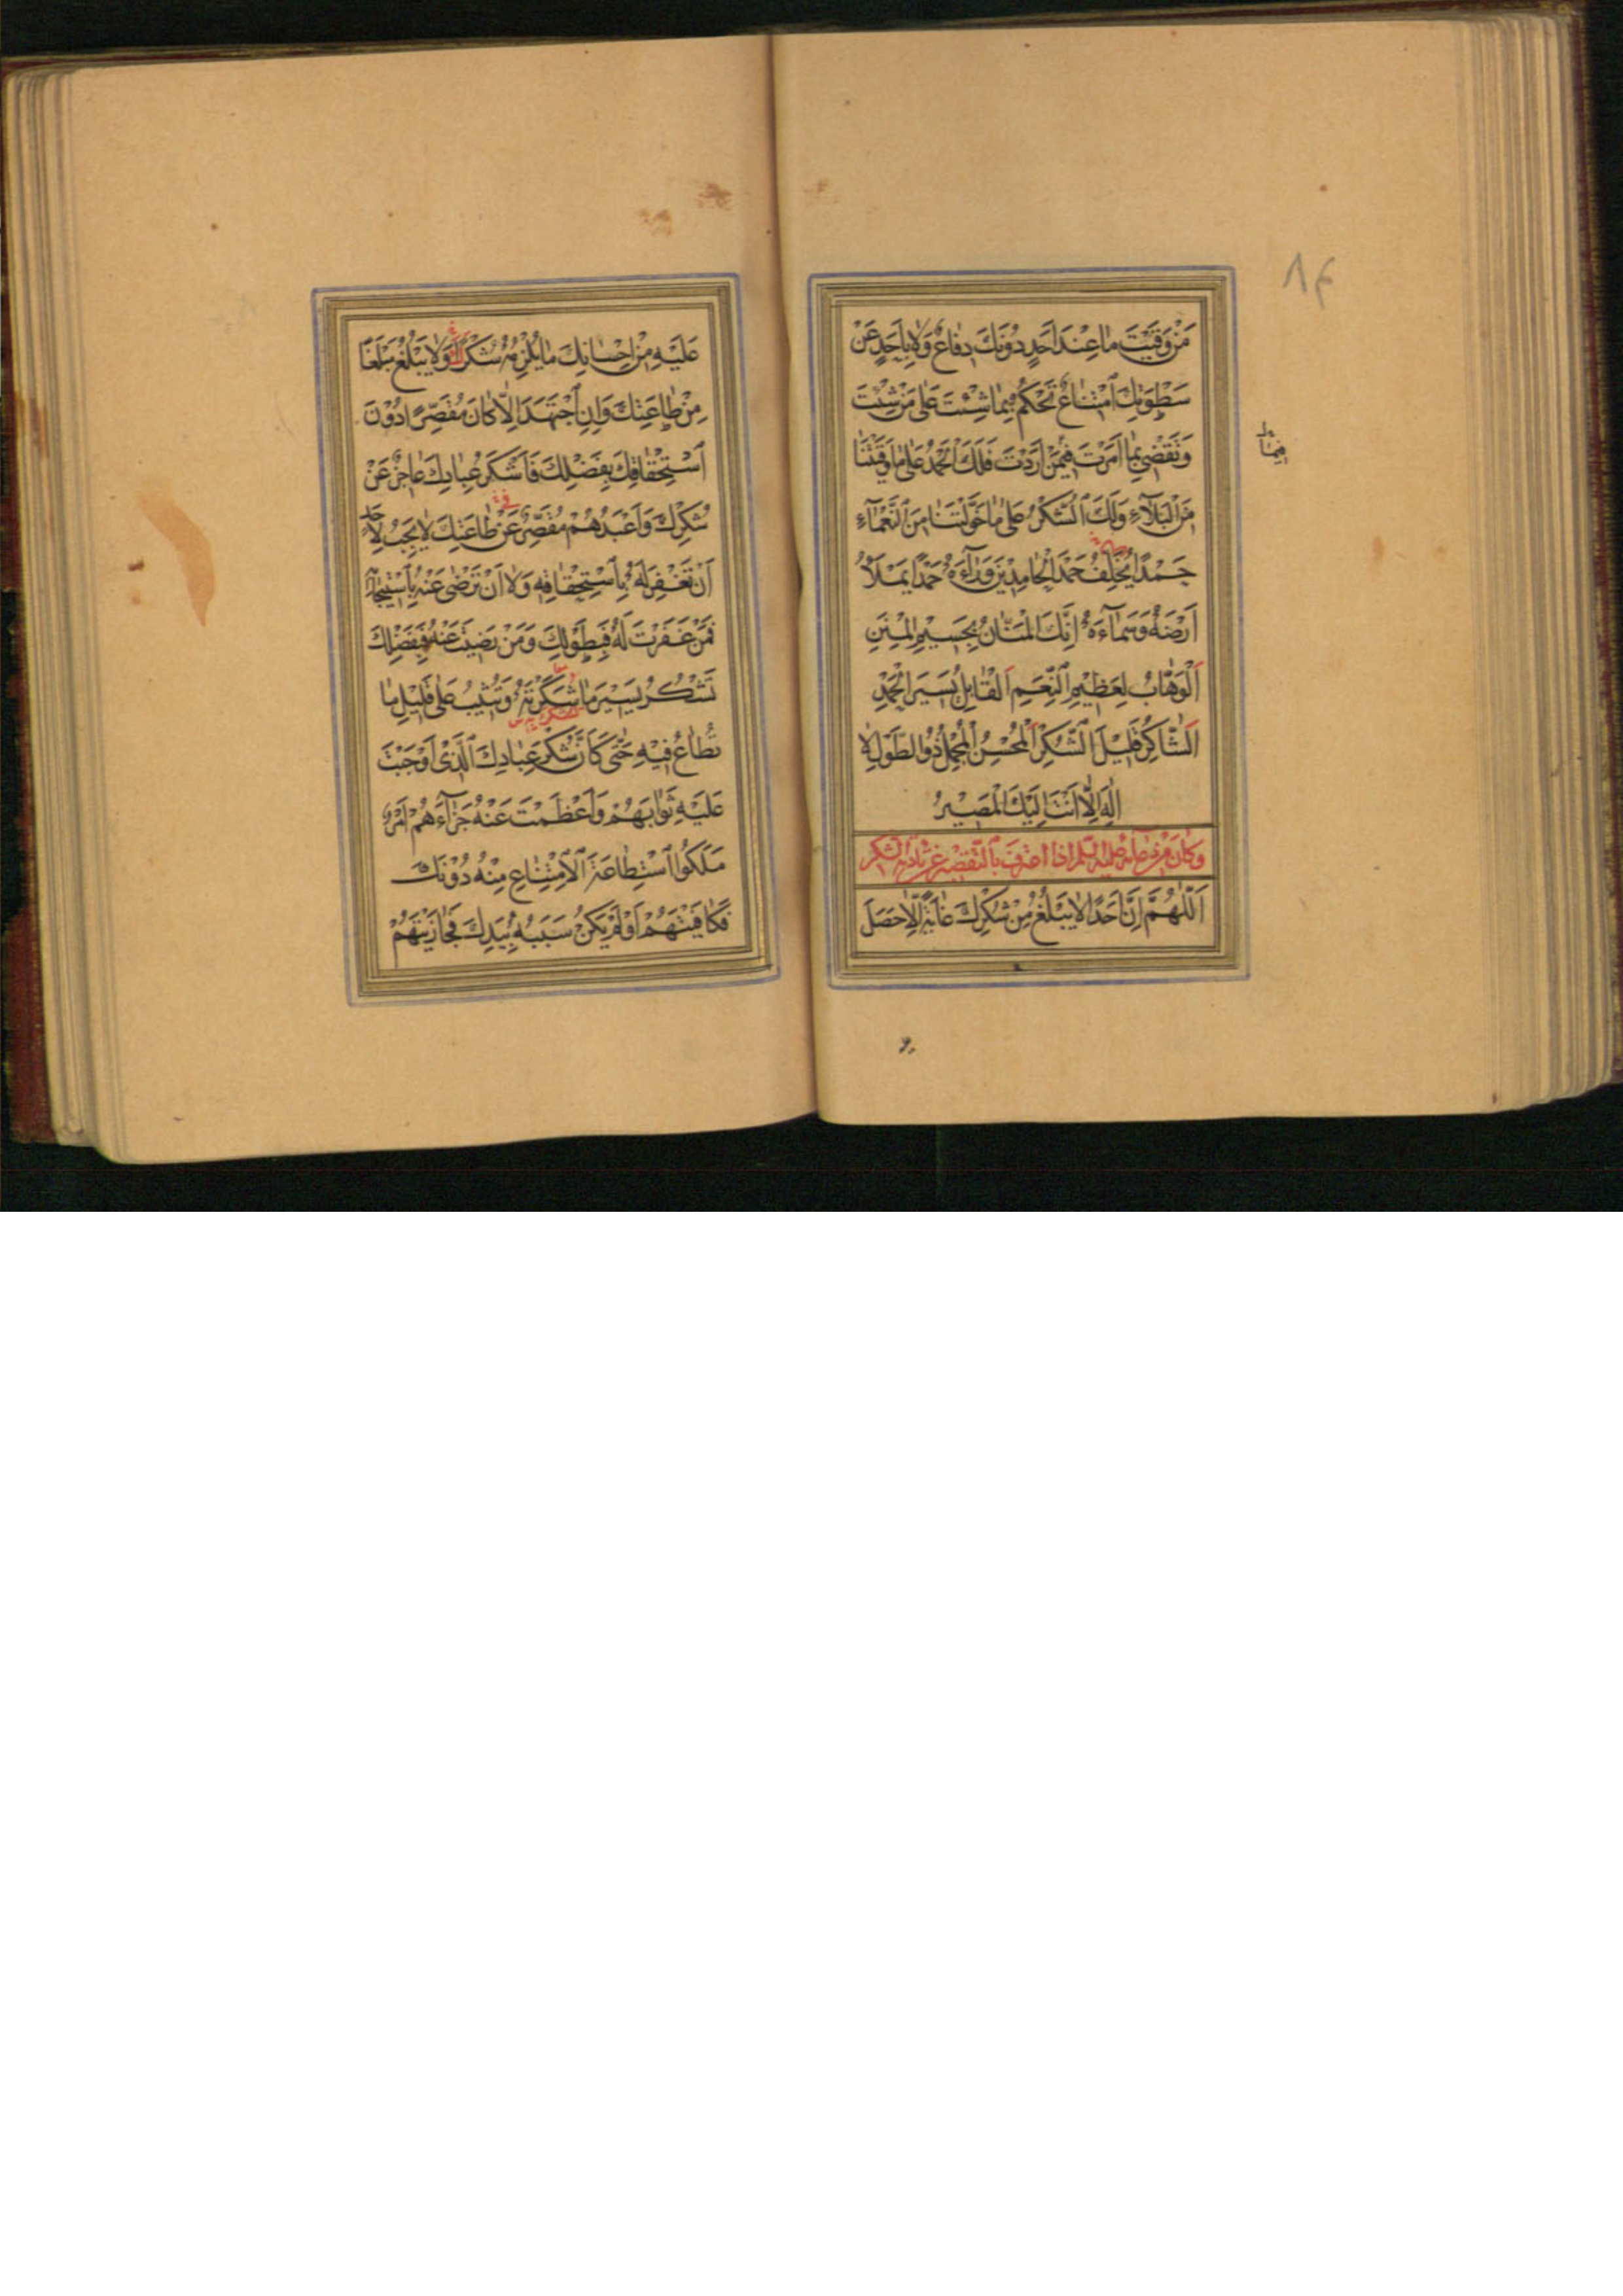 مَنْ وَقَيْتَ مَا عِنْدَ اَحَدٍ دُوْنَكَ دِفَاعٌ وَلَا بِاَحَدٍ عَنْ
سَطْوَتِكَ امْتِنَاعٌ تَحْكُمُ بِمَا شِئْتَ عَلٰى مَنْ شِئْتَ
وَتَقْضِىْ بِمَا اَمَرْتَ فِيْمَنْ اَرَدْتَ فَلَكَ الْحَمْدُ عَلٰى مَا وَقَيْتَنَا
مِنَ الْبَلَآءِ وَلَكَ الشُّكْرُ عَلٰى مَا خَوَّلْتَنَا مِنَ النَّعْمَآءِ
حَمْدًا يُخَلِّفُ حَمْدَ الْحَامِدِيْنَ وَرَآءَهُ حَمْدًا يَمْلَأُ
اَرْضَهُ وَسَمَآءَهُ اِنَّكَ الْمَنَّانُ بِجَسِيْمِ الْمِنَنِ
اَلْوَهَّابُ لِعَظِيْمِ النِّعَمِ اَلْقَابِلُ يَسِيْرَ الْحَمْدِ
اَلشَّاكِرُ قَلِيْلَ الشُّكْرِ اَلْمُحْسِنُ الْمُجْمِلُ ذُو الطَّوْلِ لَا
اِلٰهَ اِلَّا اَنْتَ اِلَيْكَ الْمَصِيْرُ
وكان من دعائه عليه السلم اذا اعترف بالتقصير عن تادية الشكر
اَللّٰهُمَّ اِنَّ اَحَدًا لَا يَبْلُغُ مِنْ شُكْرِكَ غَايَةً اِلَّا حَصَلَ
عَلَيْهِ مِنْ اِحْسَانِكَ مَا يُلْزِمُهُ شُكْرًا وَلَا يَبْلُغُ مَبْلَغًا
مِنْ طَاعَتِكَ وَاِنِ اجْتَهَدَ اِلَّا كَانَ مُقَصِّرًا دُوْنَ
اسْتِحْقَاقِكَ بِفَضْلِكَ فَاَشْكَرُ عِبَادِكَ عَاجِزٌ عَنْ
شُكْرِكَ وَاَعْبَدُهُمْ مُقَصِّرٌ عَنْ طَاعَتِكَ لَا يَجِبُ لِاَحَدٍ
اَنْ تَغْفِرَ لَهُ بِاسْتِحْقَاقِهِ وَلَا اَنْ تَرْضٰى عَنْهُ بِاسْتِيْجَابِهِ
فَمَنْ غَفَرْتَ لَهُ فَبِطَوْلِكَ وَمَنْ رَضِيْتَ عَنْهُ فَبِفَضْلِكَ
تَشْكُرُ يَسِيْرَ مَا شَكَرْتَهُ وَتُثِيْبُ عَلٰى قَلِيْلِ مَا
تُطَاعُ فِيْهِ حَتّٰى كَاَنَّ شُكْرَ عِبَادِكَ الَّذِىْ اَوْجَبْتَ
عَلَيْهِ ثَوَابَهُمْ وَاَعْظَمْتَ عَنْهُ جَزَآءَهُمْ اَمْرٌ
مَلَكُوا اسْتِطَاعَةَ الْاِمْتِنَاعِ مِنْهُ دُوْنَكَ
فَكَافَيْتَهُمْ اَوْ لَمْ يَكُنْ سَبَبُهُ بِيَدِكَ فَجَازَيْتَهُمْ